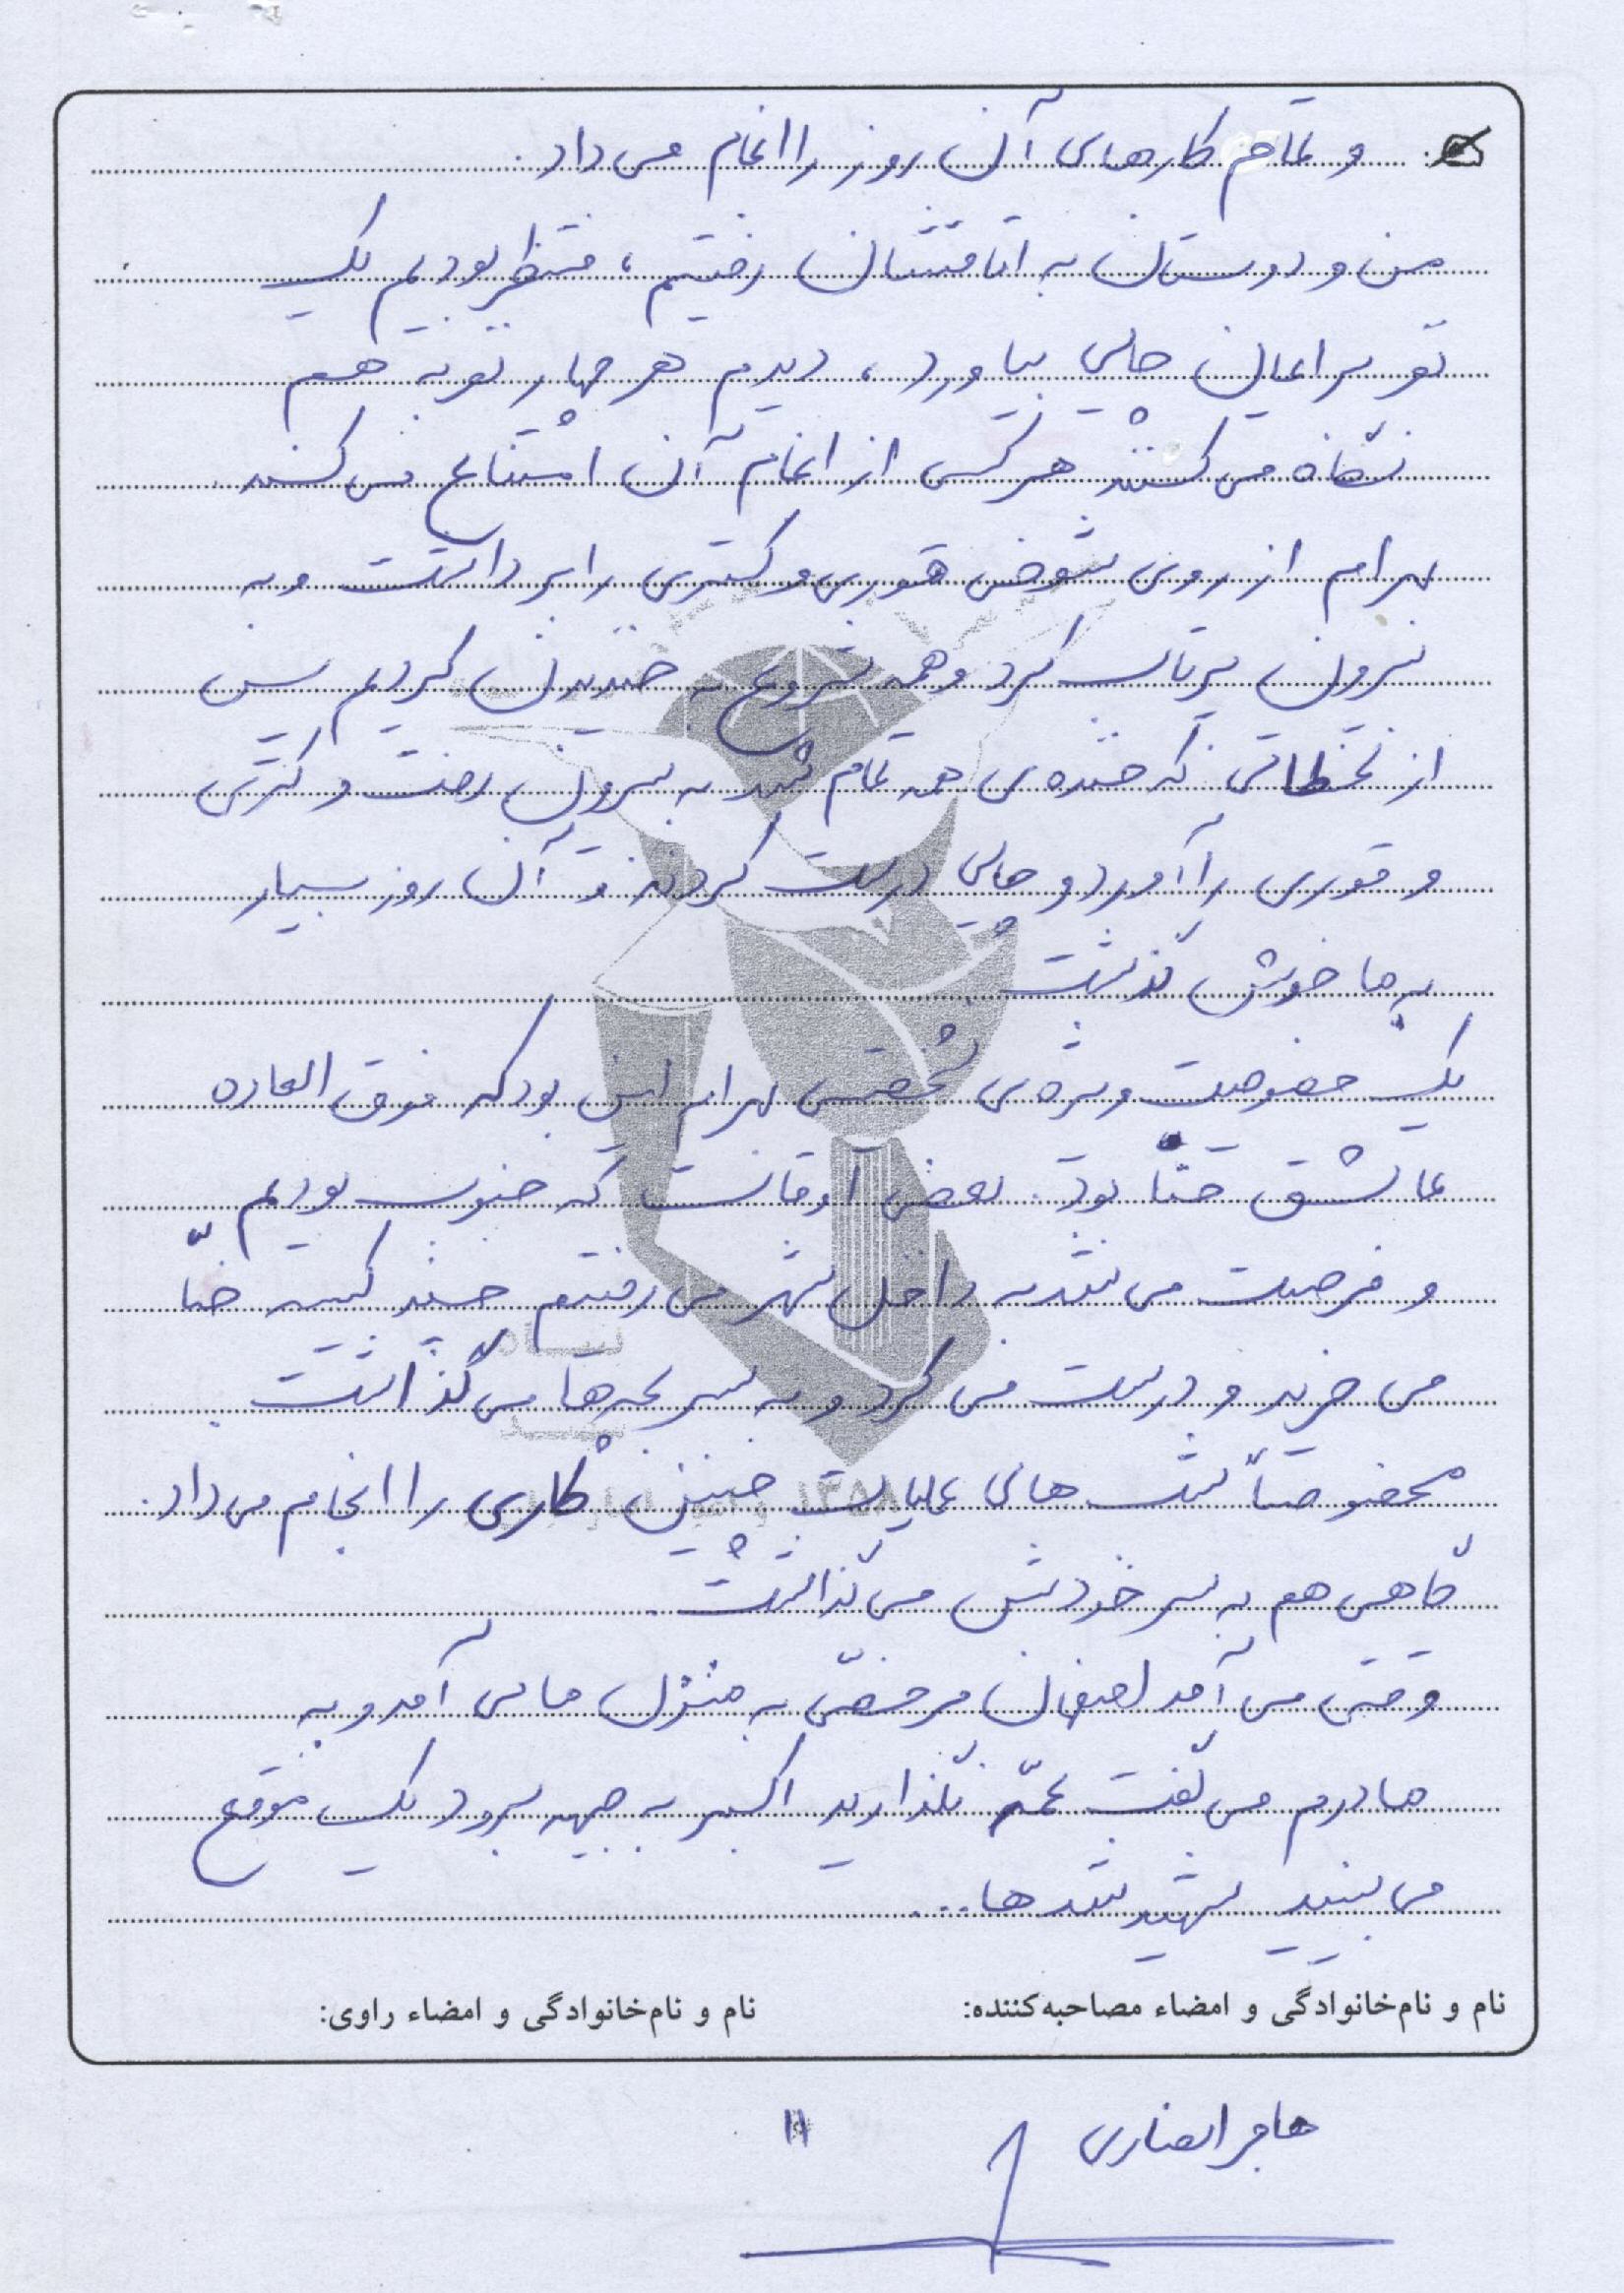 و تمام کارهای آن روز را انجام می‌داد.
من و دوستان به اتاقشان رفتیم، منتظر بودیم یک
نفر برایمان چای بیاورد، دیدم هر چهار نفر به هم
نگاه می‌کنند هر کسی از انجام آن امتناع می‌کند.
بهرام از روی شوخی قوری و کتری را برداشت و به
بیرون پرتاب کرد و همه شروع به خندیدن کردیم پس
از لحظاتی که خنده‌ی همه تمام شد به بیرون رفت و کتری
و قوری را آورد و چای درست کردند و آن روز بسیار
به ما خوش گذشت
یک خصوصیت ویژه‌ی شخصی بهرام این بود که فوق العاده
عاشق حنّا بود. بعضی اوقات که جنوب بودیم
و فرصت می‌شد به داخل شهر می‌رفتیم چند کیسه حنّا
می‌خرید و درست می‌کرد و به سر بچه‌ها می‌گذاشت.
مخصوصاً شب‌های عملیات چنین کاری را انجام می‌داد.
گاهی هم به سر خودش می‌گذاشت.
وقتی می‌آمد اصفهان مرخصّی به منزل ما می‌آمد و به
مادرم می‌گفت عمّه نگذارید اکبر به جبهه برود یک موقع
می‌بینید شهید شد ها...
نام و نام‌خانوادگی و امضاء مصاحبه‌کننده: نام و نام‌خانوادگی و امضاء راوی:
هاجر انصاری
۱۱